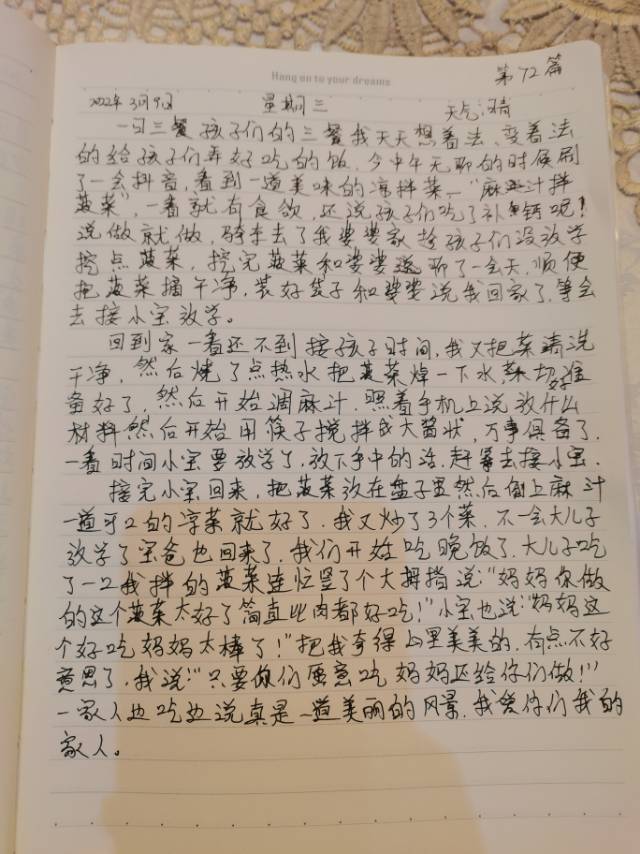 Hang on to your dreams
第72篇
2022年3月9日 星期三 天气:晴
一日三餐孩子们的三餐我天天想着法、变着法
的给孩子们弄好吃的饭,今中午无聊的时候刷
了一会抖音,看到一道美味的凉拌菜一"麻汁拌
菠菜",一看就有食欲,还说孩子们吃了补钙呢!
说做就做,骑车去了我婆婆家趁孩子们没放学
挖点菠菜,挖完菠菜和婆婆聊了一会天,顺便
把菠菜摘干净,装好袋子和婆婆说我回家了,等会
去接小宝放学。
回到家一看还不到接孩子时间,我又把菜清洗
干净,然后烧了点热水把菠菜焯一下水,切好准
备好了,然后开始调麻汁.照着手机上说放什么
材料然后开始用筷子搅拌成大酱状,万事俱备了.
一看时间小宝要放学了,放下手中的活.赶紧去接小宝.
接完小宝回来,把菠菜放在盘子里然后倒上麻汁
一道可口的凉菜就好了.我又炒了3个菜.不一会大儿子
放学了宝爸也回来了.我们开始吃晚饭了.大儿子吃
了一口我拌的菠菜连忙竖了个大拇指说:"妈妈你做
的这个菠菜太好了简直比肉都好吃!"小宝也说:"妈妈这
个好吃妈妈太棒了!"把我夸得心里美美的.有点不好
意思了.我说:"只要你们愿意吃妈妈还给你们做!"
一家人边吃边说真是一道美丽的风景.我爱你们我的
家人。